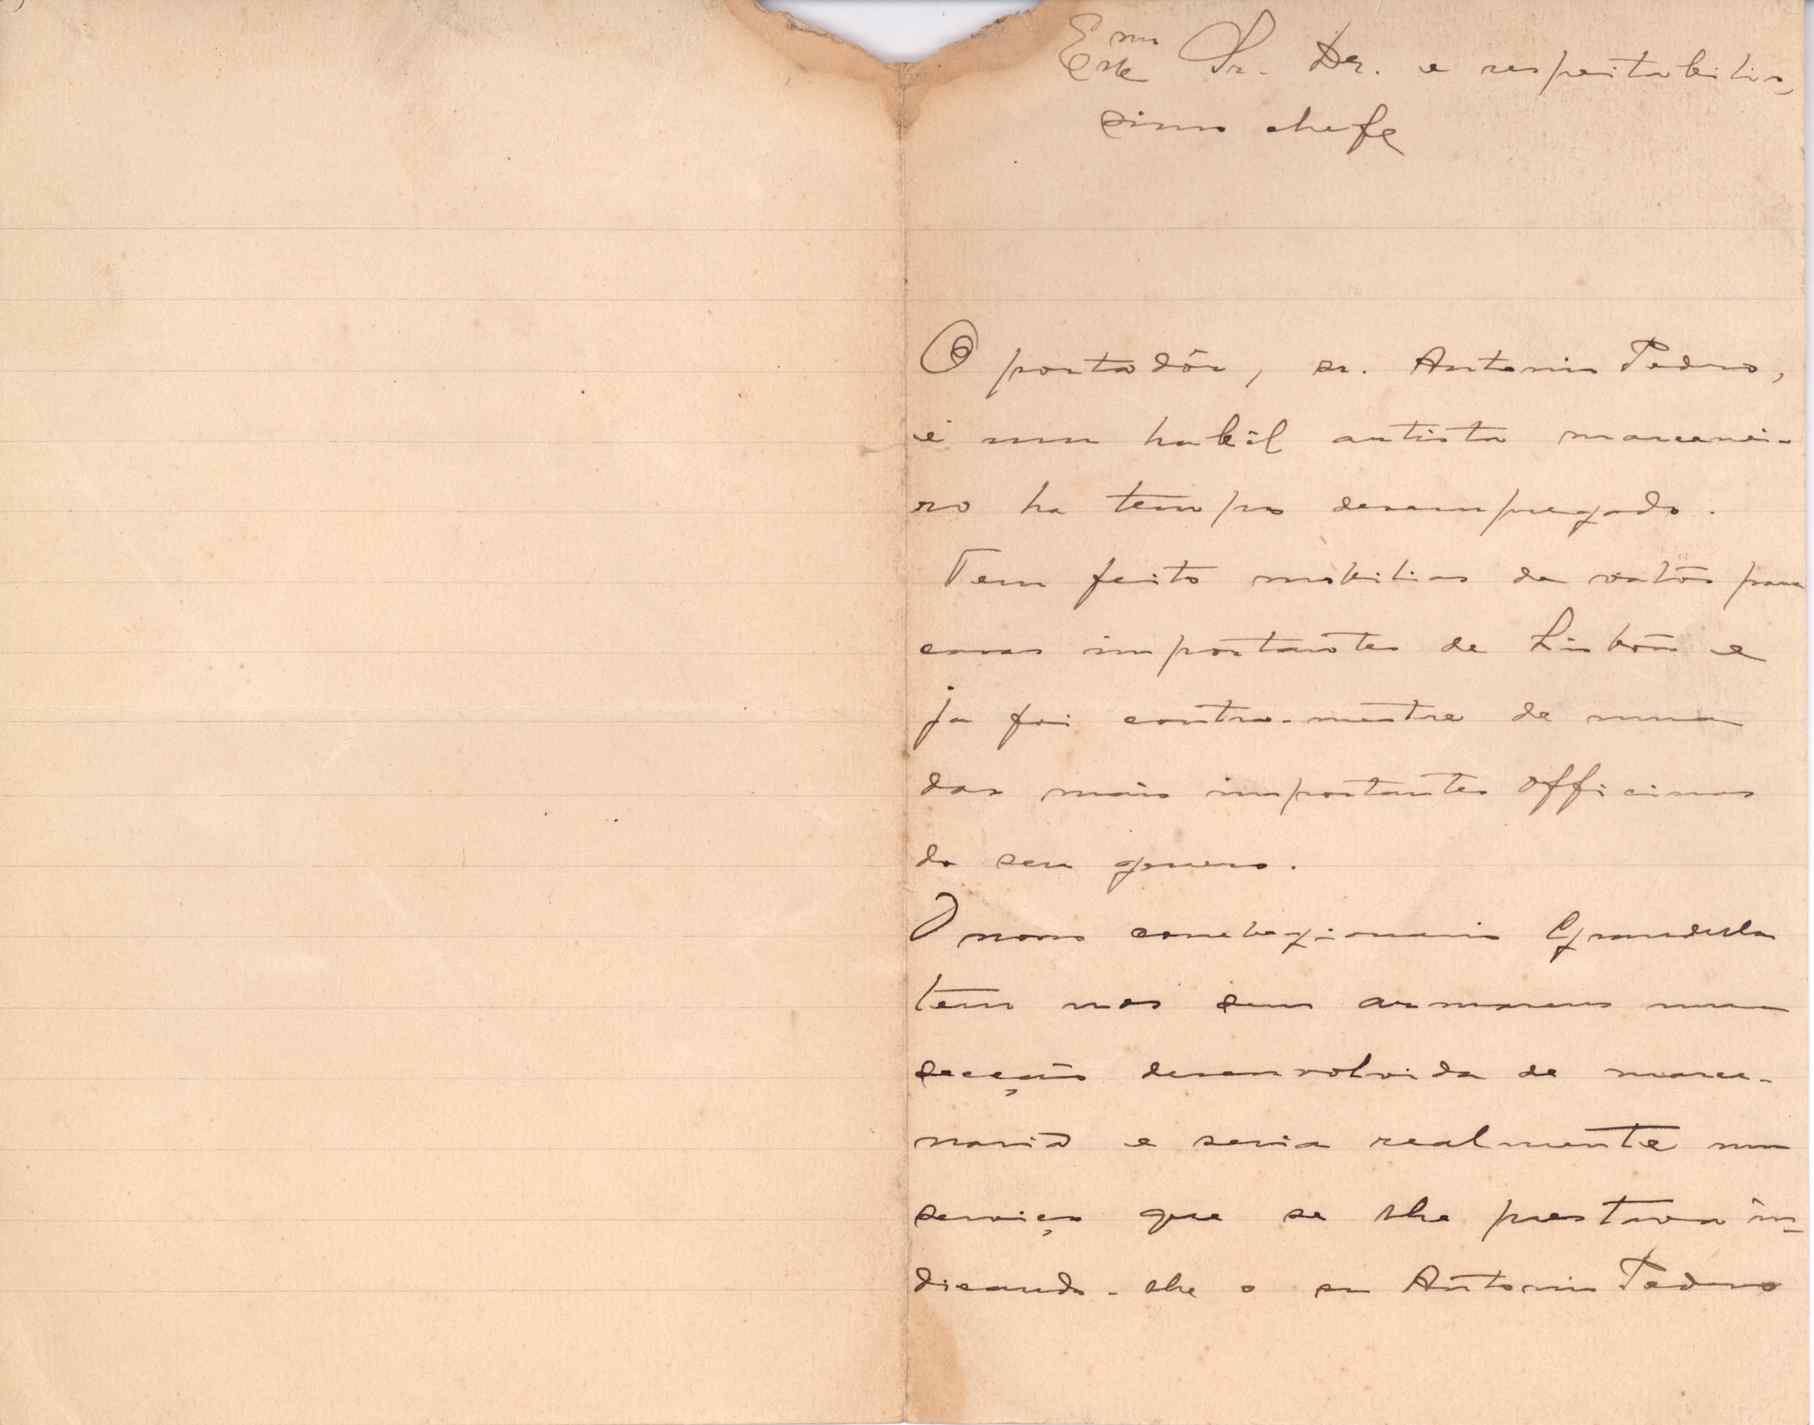 Exmo Sr. Dr. e respeitabilis-
simo chefe
O portadôr, sr. Antonio Pedro,
é um habil artista marcenei-
ro ha tempo desempregado.
Tem feito mobilias de valôr para
casas importantes de Lisbôa e
ja foi contra-mestre de uma
das mais importantes officinas
do seu genero.
O nosso correligionario Grandella
tem nos seus armazens uma
secção desenvolvida de marce-
naria e seria realmente um
serviço que se lhe prestava in-
dicando-lhe o sr Antonio Pedro